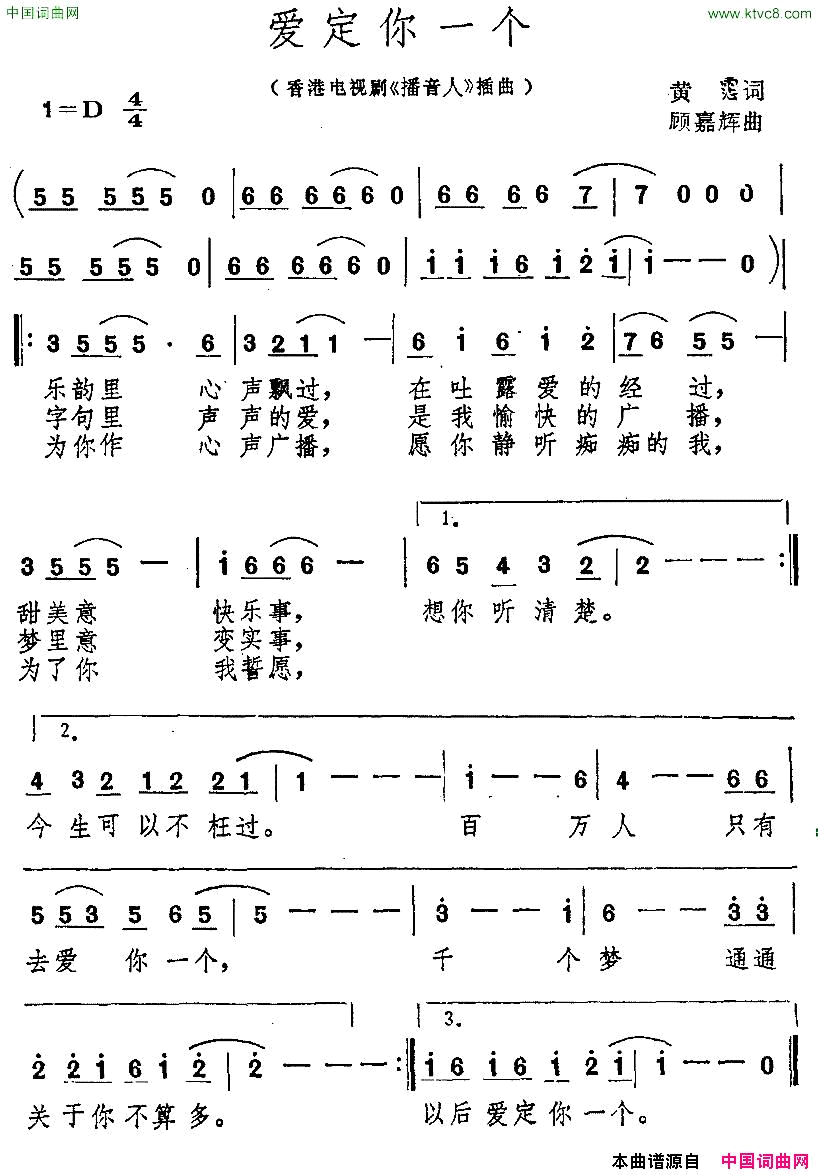 中国词曲网
www.ktvc8.com
爱定你一个
（香港电视剧《播音人》插曲）
黄霑词
1=D 4/4
顾嘉辉曲
(55 5555 0 | 66 66660 | 66 66 66 7 | 7 0 0 0 |
55 5555 0 | 66 66660 | i i i 6 i 2 i | i — — 0 )|
‖: 3 555 · 6 | 3 211 — | 6 i 6 i 2 | 76 55 — |
乐韵里 心声飘过， 在吐露爱的经过，
字句里 声声的爱， 是我愉快的广播，
为你作 心声广播， 愿你静听痴痴的我，
1.
3 555 5 — | i 666 6 — | 6 5 4 3 2 | 2 — — — :‖
甜美意 快乐事， 想你听清楚。
梦里意 变实事，
为了你 我誓愿，
2.
4 3 2 12 2 21 | 1 — — — | i — — 6 | 4 — — 66 |
今生可以不枉过。 百万人 只有
5 5 3 5 6 5 | 5 — — — | 3 — — i | 6 — — 3 3 |
去爱你一个， 千个梦 通通
3.
2 2 i 6 i 2 | 2 — — — :‖ i 6 i 6 i 2 i | i — — 0 ‖
关于你不算多。 以后爱定你一个。
本曲谱源自 中国词曲网